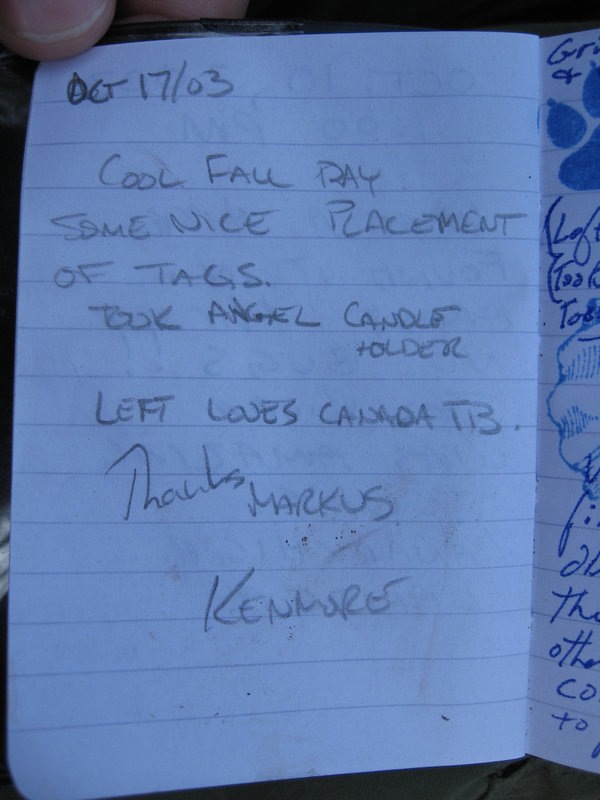 OCT 17/03
COOL FALL DAY
SOME NICE PLACEMENT
OF TAGS.
TOOK ANGEL CANDLE
HOLDER
LEFT LOVES CANADA TB.
Thanks MARKUS
KENMORE
&
(Left
(Took
the
to